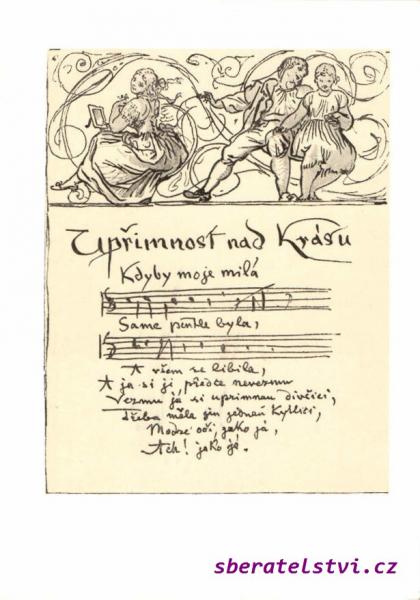 Upřímnost nad Krásu
Kdyby moje milá
Same pentle byla,
A všem se libila,
A ja si ji předce nevezmu
Vezmu já si uprimnau divčici,
Třeba měla jen jednau Kytlici,
Modré oči, jako já,
Ach! jako já.
sberatelstvi.cz